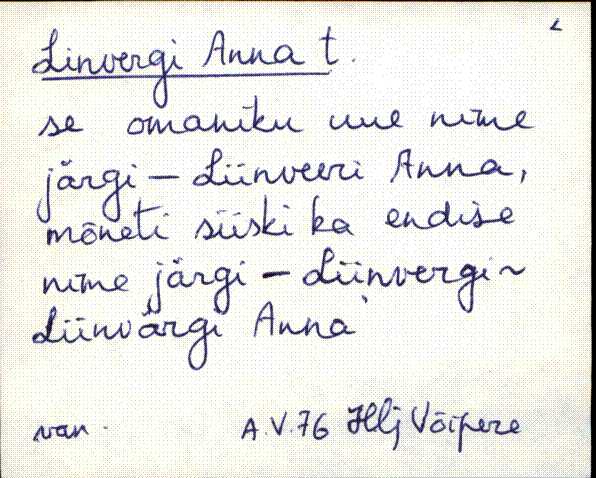 Linvergi Anna t.
se omaniku uue nime
järgi – Liinveeri Anna,
mõneti siiski ka endise
nime järgi – Liinvergi ~
Liinvärgi Anna
van. A.V.76 Hlj Võipere